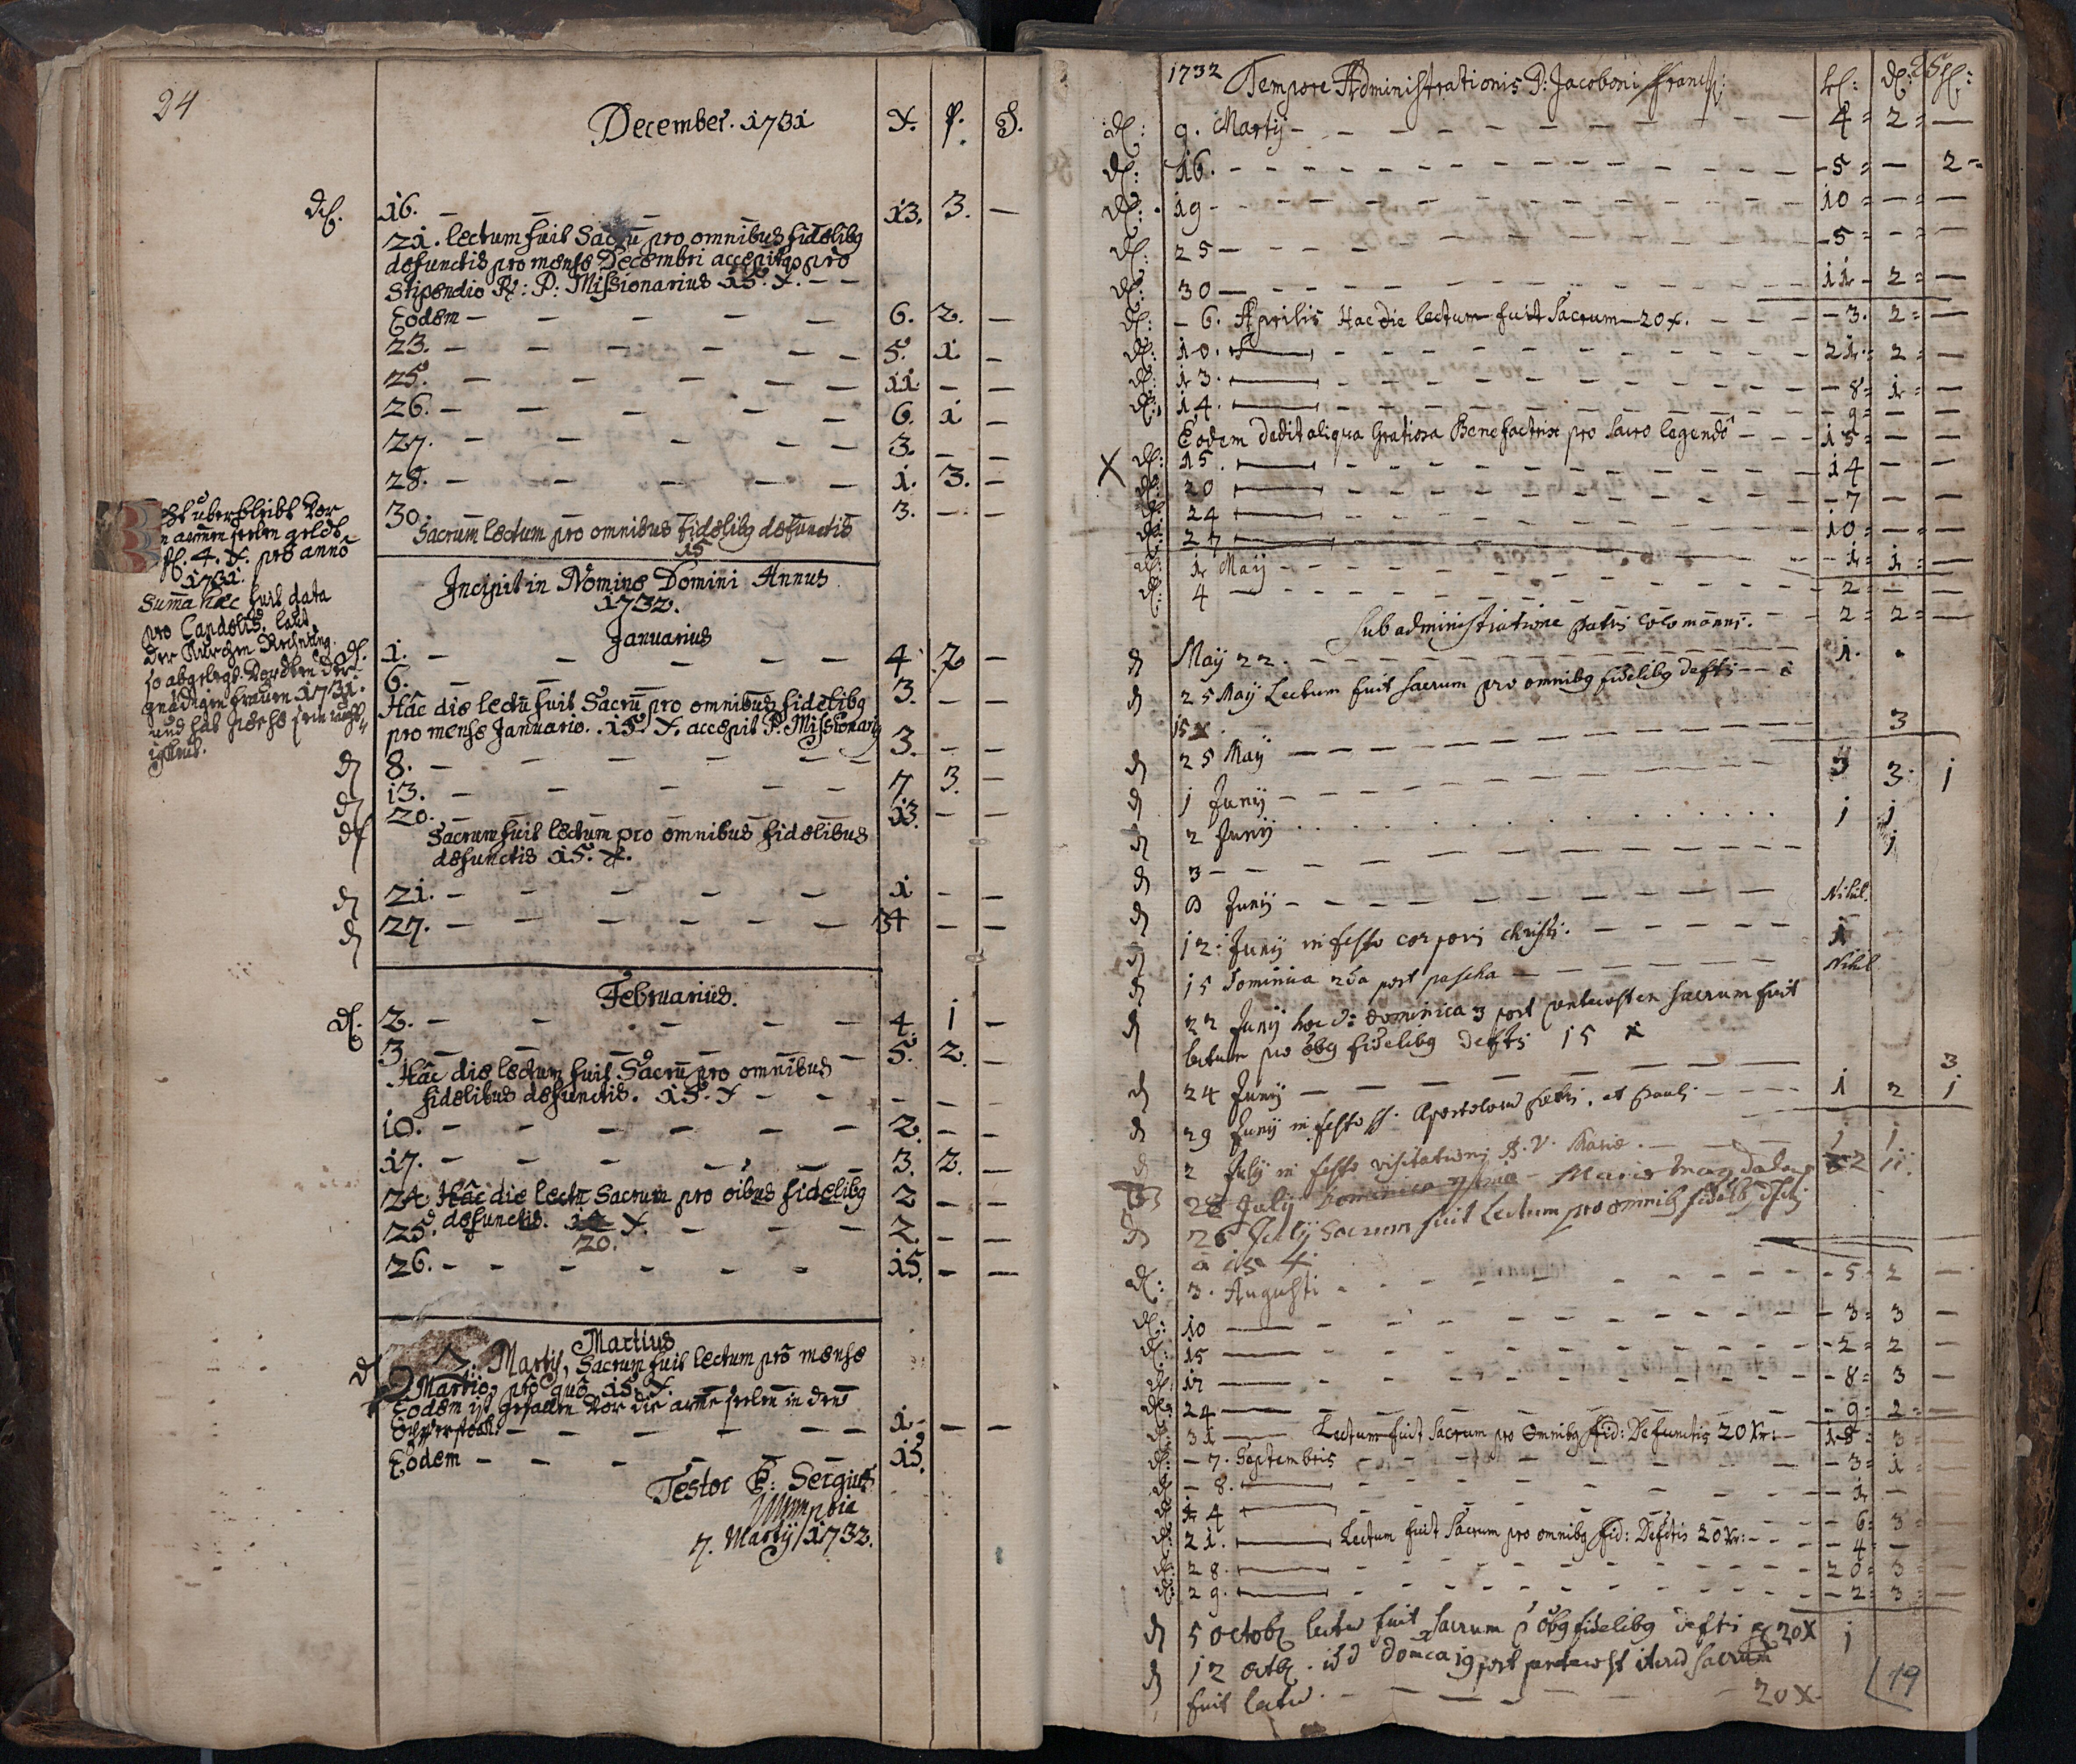 24
December. 1731 X. ₰. D.
16. — — — 13. 3. —
21. lectum fuit Sacrũ pro omnibus fidelibq
defunctis pro mense Decembri accepitqȝ pro
Stipendio R: P: Missionarius 15. X. — —
Eodem — — — — — 6. 2. —
23. — — — — — — 5. 1 —
25. — — — — — — 11. — —
26. — — — — — 6. 1 —
27. — — — — — 3. — —
28. — — — — — 1. 3. —
30. — — — — — 3. — —
Sacrum lectum pro omnibus fidelibq defunctis
15
Incipit in Nomine Domini Annus
1732.
Januarius
1. — — — — — 4 2 —
6. — — — — — 3. — —
Hâc die lectũ fuit Sacrũ pro omnibus fidelibq
pro mense Januario. 15. X. accepit P. Missionariq
8. — — — — — 3. — —
13. — — — — — 7 3. —
20. — — — — — 13. — —
Sacrum fuit lectum pro omnibus fidelibus
defunctis 15. X.
21. — — — — — 1 — —
27. — — — — — 34 — —
Februarius.
2. — — — — — 4. 1 —
3. — — — — — 5. 2. —
Hâc die lectum fuit Sacrũ pro omnibus
fidelibus defunctis. 15. X — — — — —
10. — — — — — 2. — —
17. — — — — — 3. 2. —
24. Hâc die lectũ Sacrum pro oibus fidelibq 2 — —
defunctis. X.
20.
25. — — — 2. — —
26. — — — — — — 15. — —
Martius
2. Martij, Sacrum fuit lectum prô mense
Martio, prô quô 15. X.
Eodem ist gefallen vor die arme seelen in den
— — — — — — 1. — —
Eodem — — — — — 15.
Testor P: Sergius
7. Martij 1732.
überbleibt vor
armen seelen geldt
fl. 4. X. pro annô
1731.
Suma haec fuit data
pro Candelis, laut
der Kirchen Rechnung.
so abgelegt worden der
gnädigen frauen 1731.
und hat
1732 Tempore Administrationis P: Jacoboni Francis: 25
9. Martij — — — — 4 = 2 = —
16. — — — — — 5 = — 2 =
19 — — — — — 10 = — = —
25 — — — — — 5 = — = —
30 — — — — — 11 — 2 = —
6. Aprilis Hac die lectum fuit Sacrum 20 x. — — — 3. 2 = —
10. — — — — — 21 = 2 = —
13. — — — — — 8 = 1 = —
14. — — — — — 9 = — —
Eodem dedit aliqua Gratiosa Benefactrix pro Sacro legendô — — 15 = — —
X 15. — — — — — 14 — —
20 — — — — — 7 — —
24 — — — — — 10 = — = —
27 — — — — — 1 = 1 = —
1 Maij — — — — — 2 = — —
4 — — — — — 2 = 2 = —
Sub administratione patris Colomanni.
Maij 22. — — — — — 1.
25 Maij Lectum fuit sacrum pro omnibq fidelibq deftis — — à
15 X.
25 Maij — — — — — 3
1 Junij — — — — — 3 3. 1
2 Junij . . . . . 1 1
3 — — — — — 1
8 Junij — — — — — Nihil.
12: Junij in festo corporis christi. — — — — 1
15 dominica 2da post pascha — — — Nihil
22 Junij hoc d: dominica 3 post pentecosten sacrum fuit
lectum pro õbq fidelibq deftis 15 X
24 Junij — — — — — 3
29 Junij in festo SS. Apostolorũ petri, et pauli — — — 1 2 1
2 July in festo visitationis B. V. Mariæ. — — 1 1
July Maria Magdalena 2 11.
26 July Sacrum fuit Lectum pro omnibq fidelibq
à 15 X
3. Augusti — — — — — 5 = 2 —
10 — — — — — 3 = 3 —
15 — — — — — 2 = 2 —
17 — — — — — 8 = 3 —
24 — — — — — 9 = 2 = —
31 — Lectum fuit Sacrum pro Omnibq fid: Defunctis 20 Xr: — 18 = 3 =
7. Septembris — — — — — 3 = 1 =
8. — — — — — 1 —
14 — — — — — 6 = 3 =
21. — Lectum fuit Sacrum pro omnibq fid: Defctis 20 Xr: — — 4 = —
28. — — — — — 20 = 3 =
29. — — — — — 2 = 3 = —
5 octob lectũ fuit sacrum p õbq fidelibq deftis 20 X 1
12 octb. dom̃ca 19 post pentecost sacrum
fuit lectũ. — — — — 20 X
19